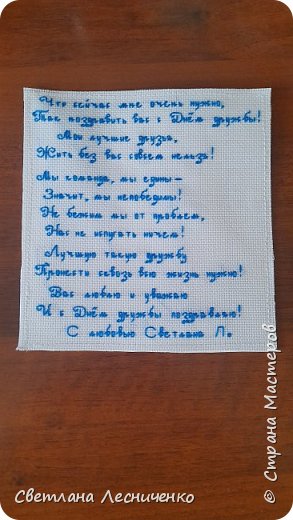 Что сейчас мне очень нужно,
Как поздравить вас с Днём дружбы!
Мои лучшие друзья,
Жить без вас совсем нельзя!
Мы команда, мы едины -
Значит, мы непобедимы!
Не бежим мы от проблем,
Нас не испугать ничем!
Лучшую такую дружбу
Пронести сквозь всю жизнь нужно!
Вас люблю и уважаю
И с Днём дружбы поздравляю!
С любовью Светлана Л.
Светлана Лесниченко
© Страна Мастеров